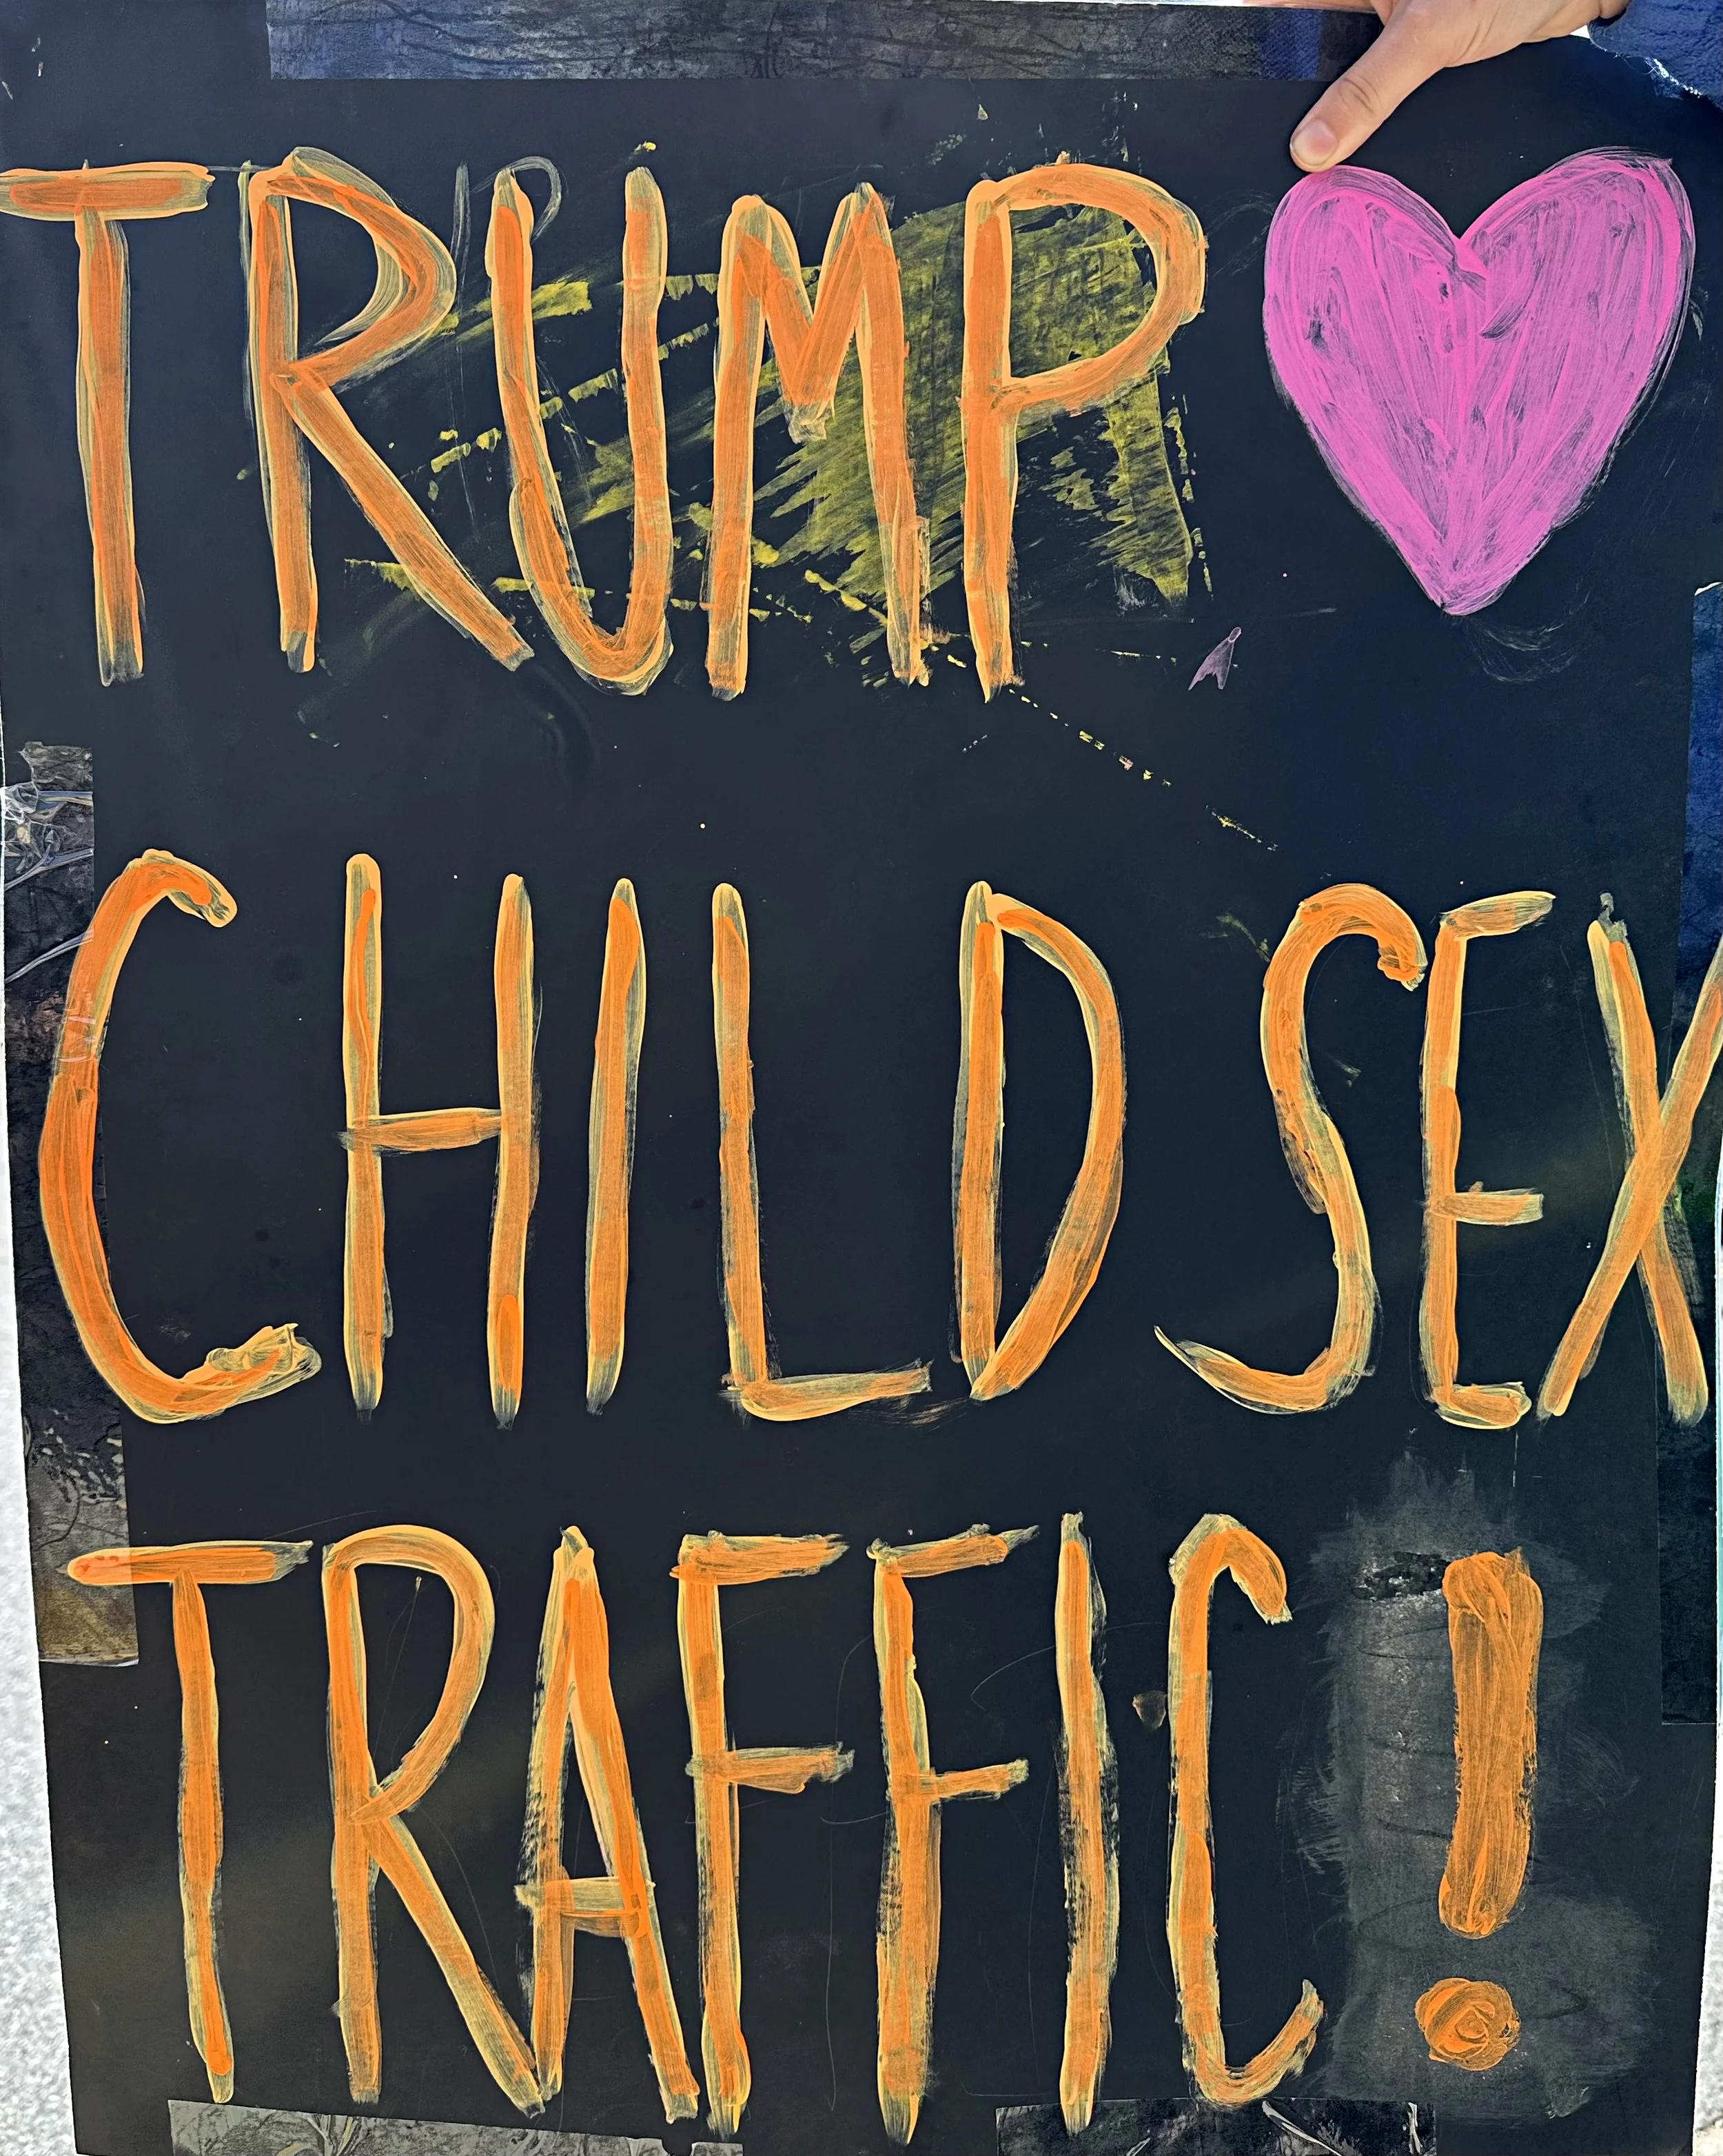 TRUMP
CHILD SEX
TRAFFIC!